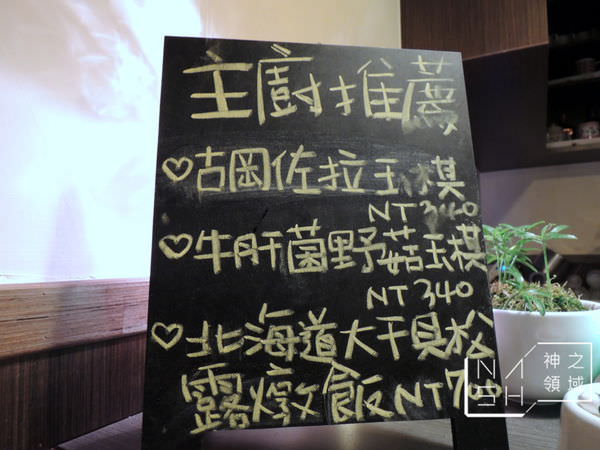 主廚推薦
♡古岡佐拉玉棋
NT340
♡牛肝菌野菇玉棋
NT340
♡北海道大干貝松
露燉飯NT700
神之
領域